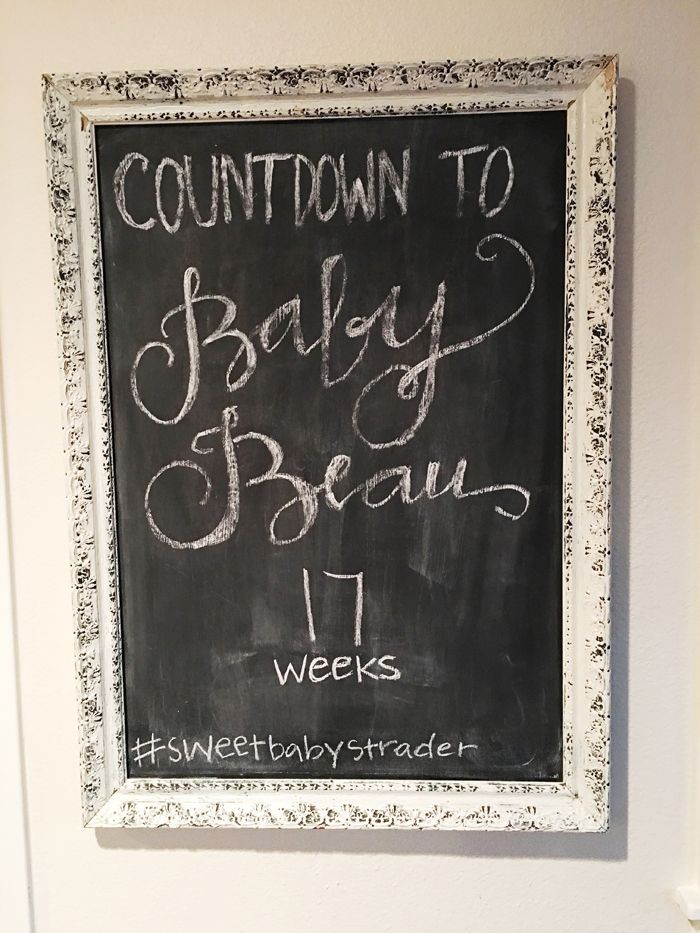 COUNTDOWN TO
Baby
Beau
17
weeks
#sweetbabystrader